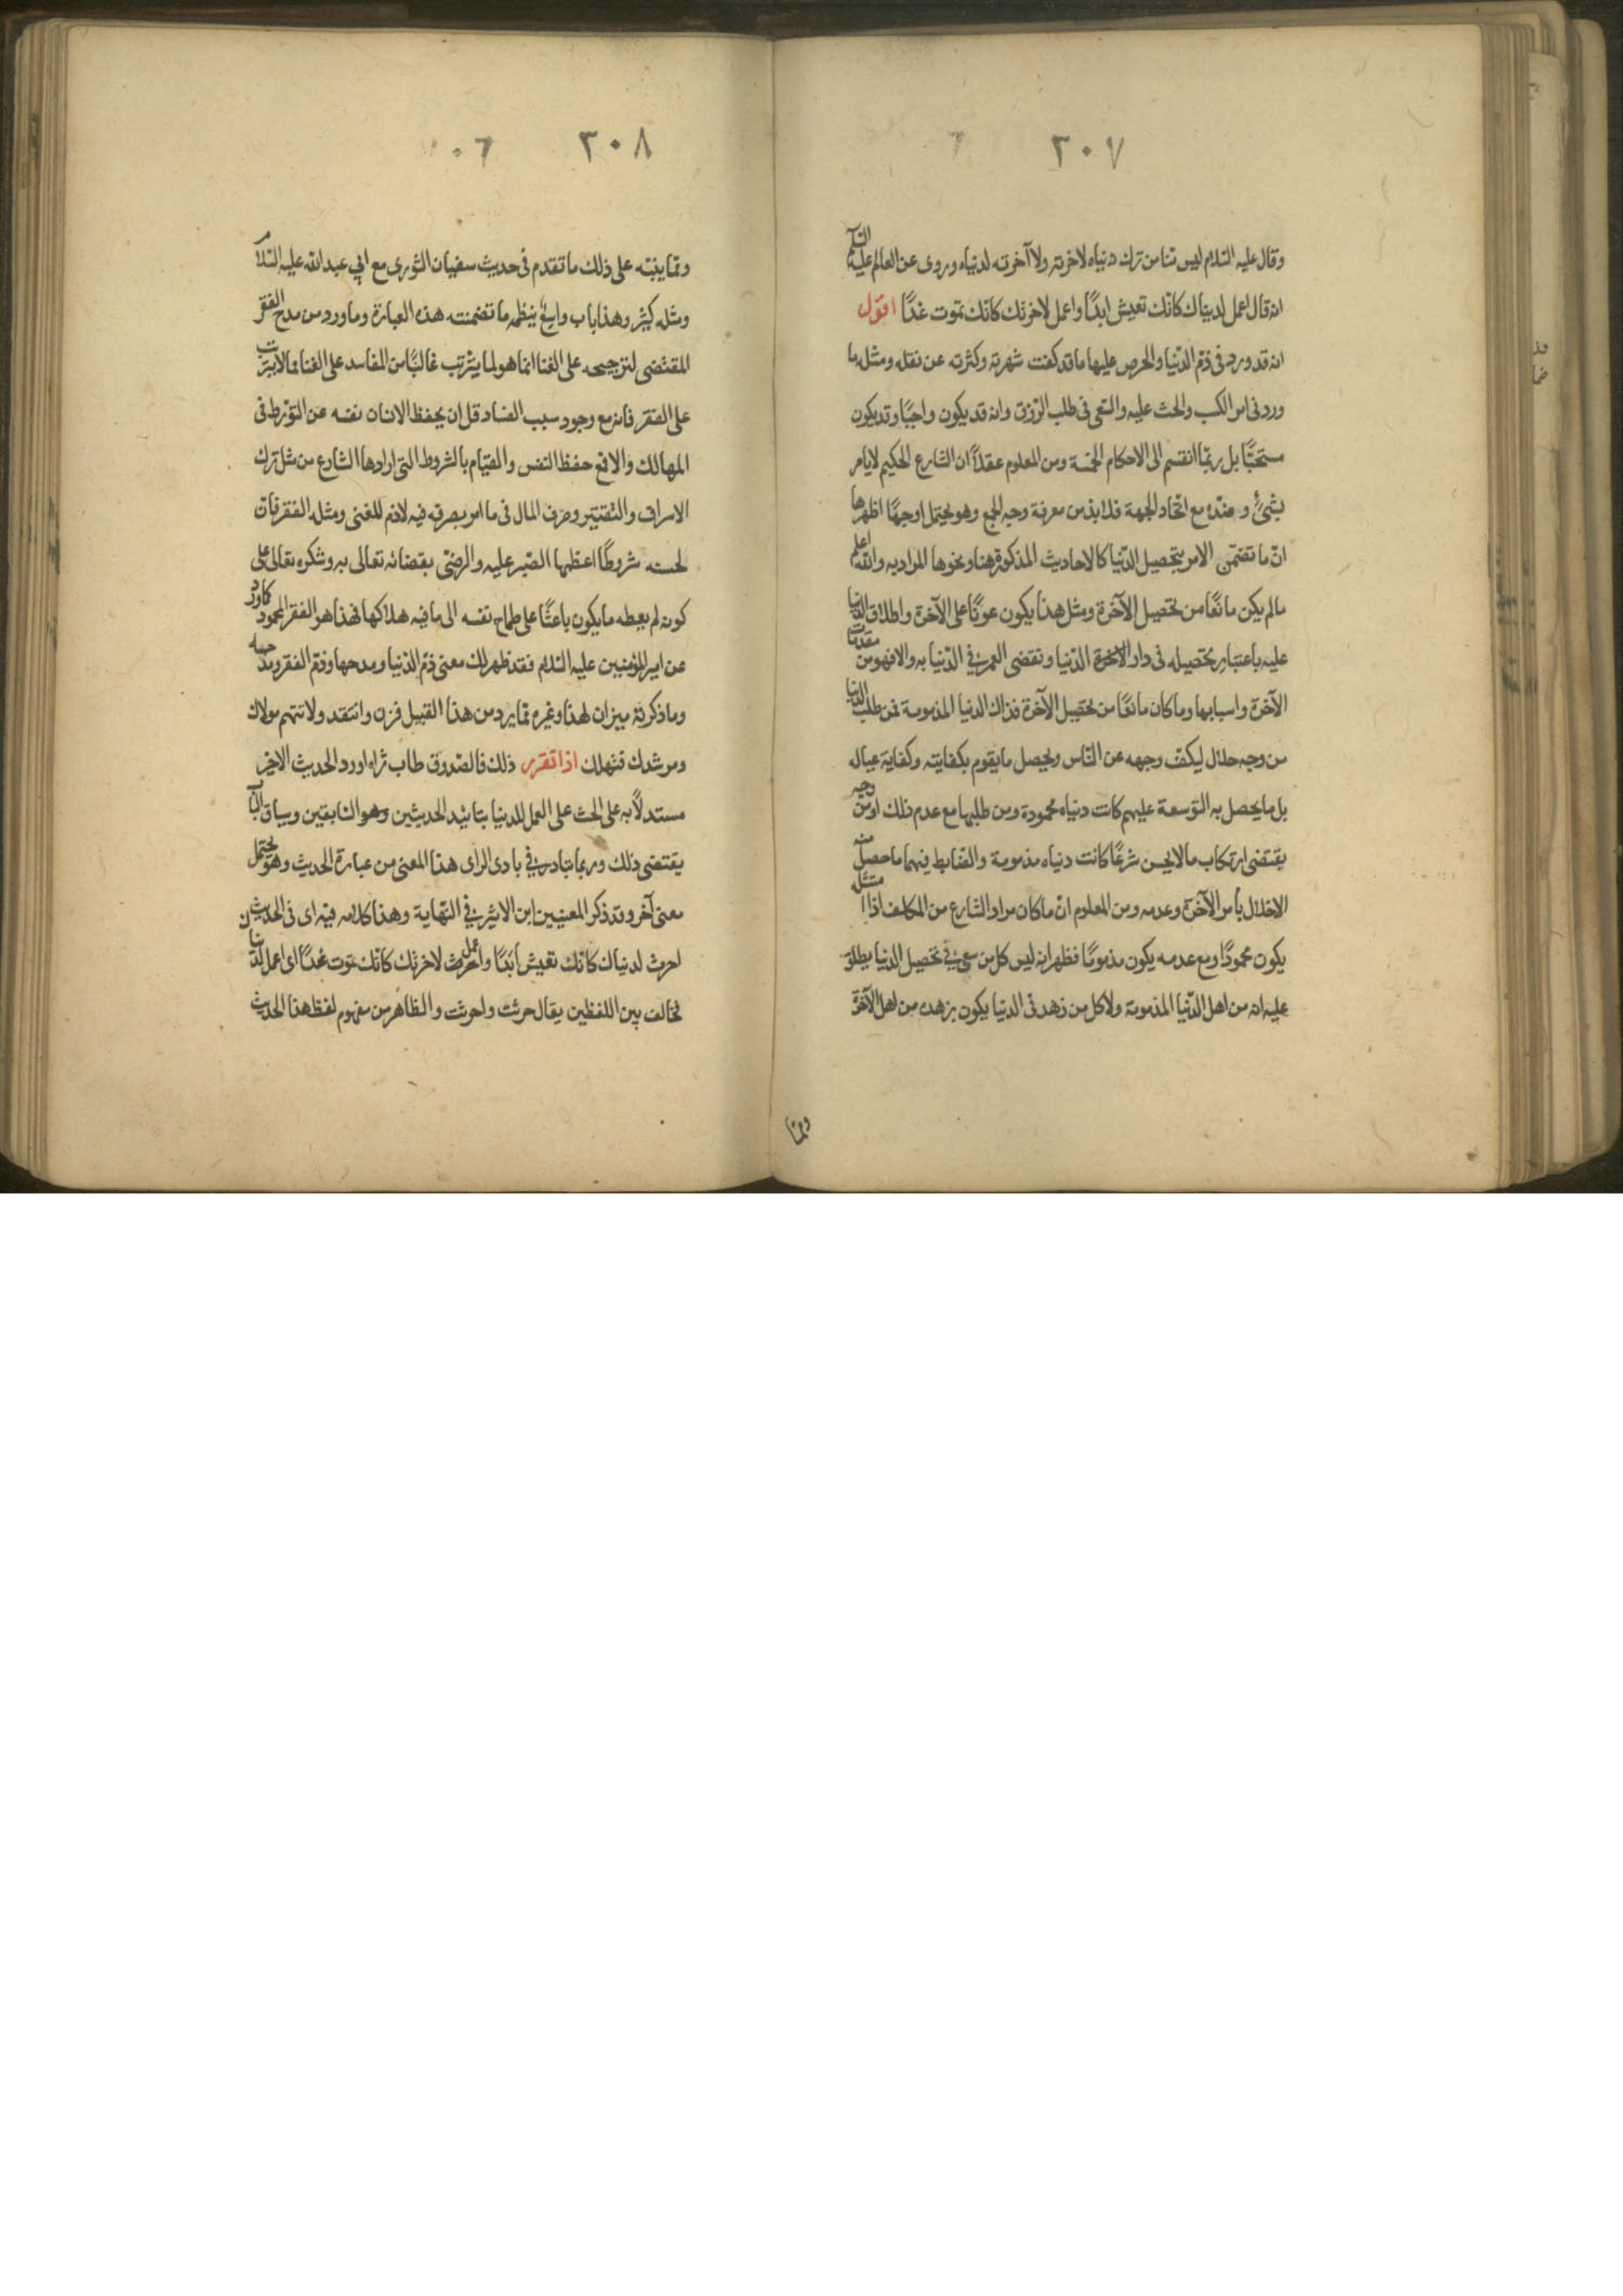 ٢٠٧
وقال عليه السلام ليس منا من ترك دنياه لاخرته ولا آخرته لدنياه وروى عن العالم عليه السلم
انه قال اعمل لدنياك كانّك تعيش ابدًا واعمل لاخرتك كانّك تموت غدًا اقول
انه قد ورد فى ذمّ الدّنيا والحرص عليها ما قد كفت شهرته وكثرته عن نقله ومثله ما
ورد فى امر الكسب والحث عليه والسّعى فى طلب الرّزق وانه قد يكون واجبًا وقد يكون
مستحبًّا بل ربّما انقسم الى الاحكام الخمسة ومن المعلوم عقلاً ان الشارع الحكيم لا يامر
بشئٍ وضدّه مع اتّحاد الجهة فلا بدّ من معرفة وجه الجمع وهو يحتمل اوجهًا اظهرها
انّ ما تضمّن الامر بتحصيل الدّنيا كالاحاديث المذكورة هنا ونحوها المراد به والله اعلم
مالم يكن مانعًا من تحصيل الآخرة ومثل هذا يكون عونًا على الآخرة واطلاق الدنيا
عليه باعتبار تحصيله فى دار الاخرة الدّنيا وتقضى العمر فى الدّنيا به والا فهو من مقدمات
الآخرة واسبابها وما كان مانعًا من تحصيل الآخرة فذاك الدنيا المذمومة فمن طلب الدنيا
من وجه حلال ليكفّ وجهه عن النّاس ويحصل ما يقوم بكفايته وكفاية عياله
بل ما يحصل به التوسعة عليهم كانت دنياه محمودة ومن طلبها مع عدم ذلك او من وجه
يقتضى ارتكاب ما لا يحسن شرعًا كانت دنياه مذمومة والضابط فيهما ما حصل منه
الاخلال بأمر الآخرة وعدمه ومن المعلوم انّ ما كان مراد الشارع من المكلف اذا امتثل
يكون محمودًا ومع عدمه يكون مذمومًا فظهر انه ليس كل من سعى فى تحصيل الدنيا يطلق
عليه انه من اهل الدّنيا المذمومة ولا كل من زهد فى الدنيا يكون بزهده من اهل الآخرة
وممّا
٢٠٨
وممّا ينبّه على ذلك ما تقدم فى حديث سفيان الثورى مع ابي عبد الله عليه السّلام
ومثله كثير وهذا باب واسع ينظمه ما تضمنته هذه العبارة وما ورد من مدح الفقر
المقتضى لترجيحه على الغنا انما هو لما يترتب غالبًا من المفاسد على الغنا مما لا يترتب
على الفقر فانه مع وجود سبب الفساد قل ان يحفظ الانسان نفسه عن التورّط فى
المهالك والا فمع حفظ النفس والقيام بالشروط التى ارادها الشارع من مثل ترك
الاسراف والتقتير وصرف المال فى ما امر بصرفه فيه لا ذم للغنى ومثله الفقر فانّ
لحسنه شروطًا اعظمها الصّبر عليه والرضى بقضائه تعالى به وشكره تعالى على
كونه لم يعطه ما يكون باعثًا على طماح نفسه الى ما فيه هلاكها فهذا هو الفقر المحمود كما ورد
عن امير المؤمنين عليه السلام فقد ظهر لك معنى ذمّ الدّنيا ومدحها وذمّ الفقر ومدحه
وما ذكرته ميزان لهذا وغيره ممّا يرد من هذا القبيل فزن وانتقد ولا تتهم مولاك
ومرشدك فتهلك اذا تقرر ذلك فالصّدوق طاب ثراه اورد الحديث الاخير
مستدلاً به على الحث على العمل للدنيا بتائيد الحديثين وهو السّابقين وسياق الباب
يقتضى ذلك وربما يتبادر فى بادى الراى هذا المعنى من عبارة الحديث وهو يحتمل
معنى آخر وقد ذكر المعنيين ابن الاثير فى النّهاية وهذا كلامه فيه اى فى الحديث
احرث لدنياك كانّك تعيش ابدًا واعمل لاخرتك كانّك تموت غدًا اى اعمل لدنياك
فخالف بين اللفظين يقال حرثت واحرثت والظاهر من مفهوم لفظ هذا الحديث